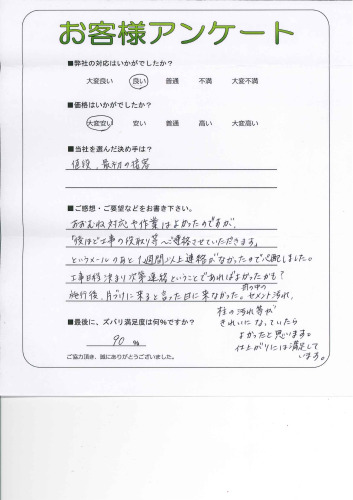 お客様アンケート
■弊社の対応はいかがでしたか？
大変良い 良い 普通 不満 大変不満
■価格はいかがでしたか？
大変安い 安い 普通 高い 大変高い
■当社を選んだ決め手は？
値段、最初の接客
■ご感想・ご要望などをお書き下さい。
おおむね対応や作業はよかったのですが、
「後ほど工事の段取り等へご連絡させていただきます」
というメールのあと1週間以上連絡がなかったので心配しました。
工事日程決まり次第連絡ということであればよかったかも？
施行後、片づけに来ると言った日に来なかった。セメント汚れ、
柱の汚れ等が
きれいになっていたら
よかったと思います。
仕上がりには満足して
います。
■最後に、ズバリ満足度は何％ですか？
90 ％
ご協力頂き、誠にありがとうございました。